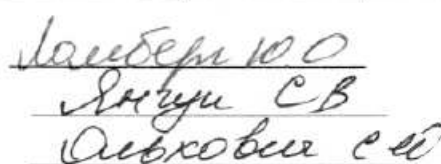 Ламберт Ю.О
Янчук С В
Ольхович С Й